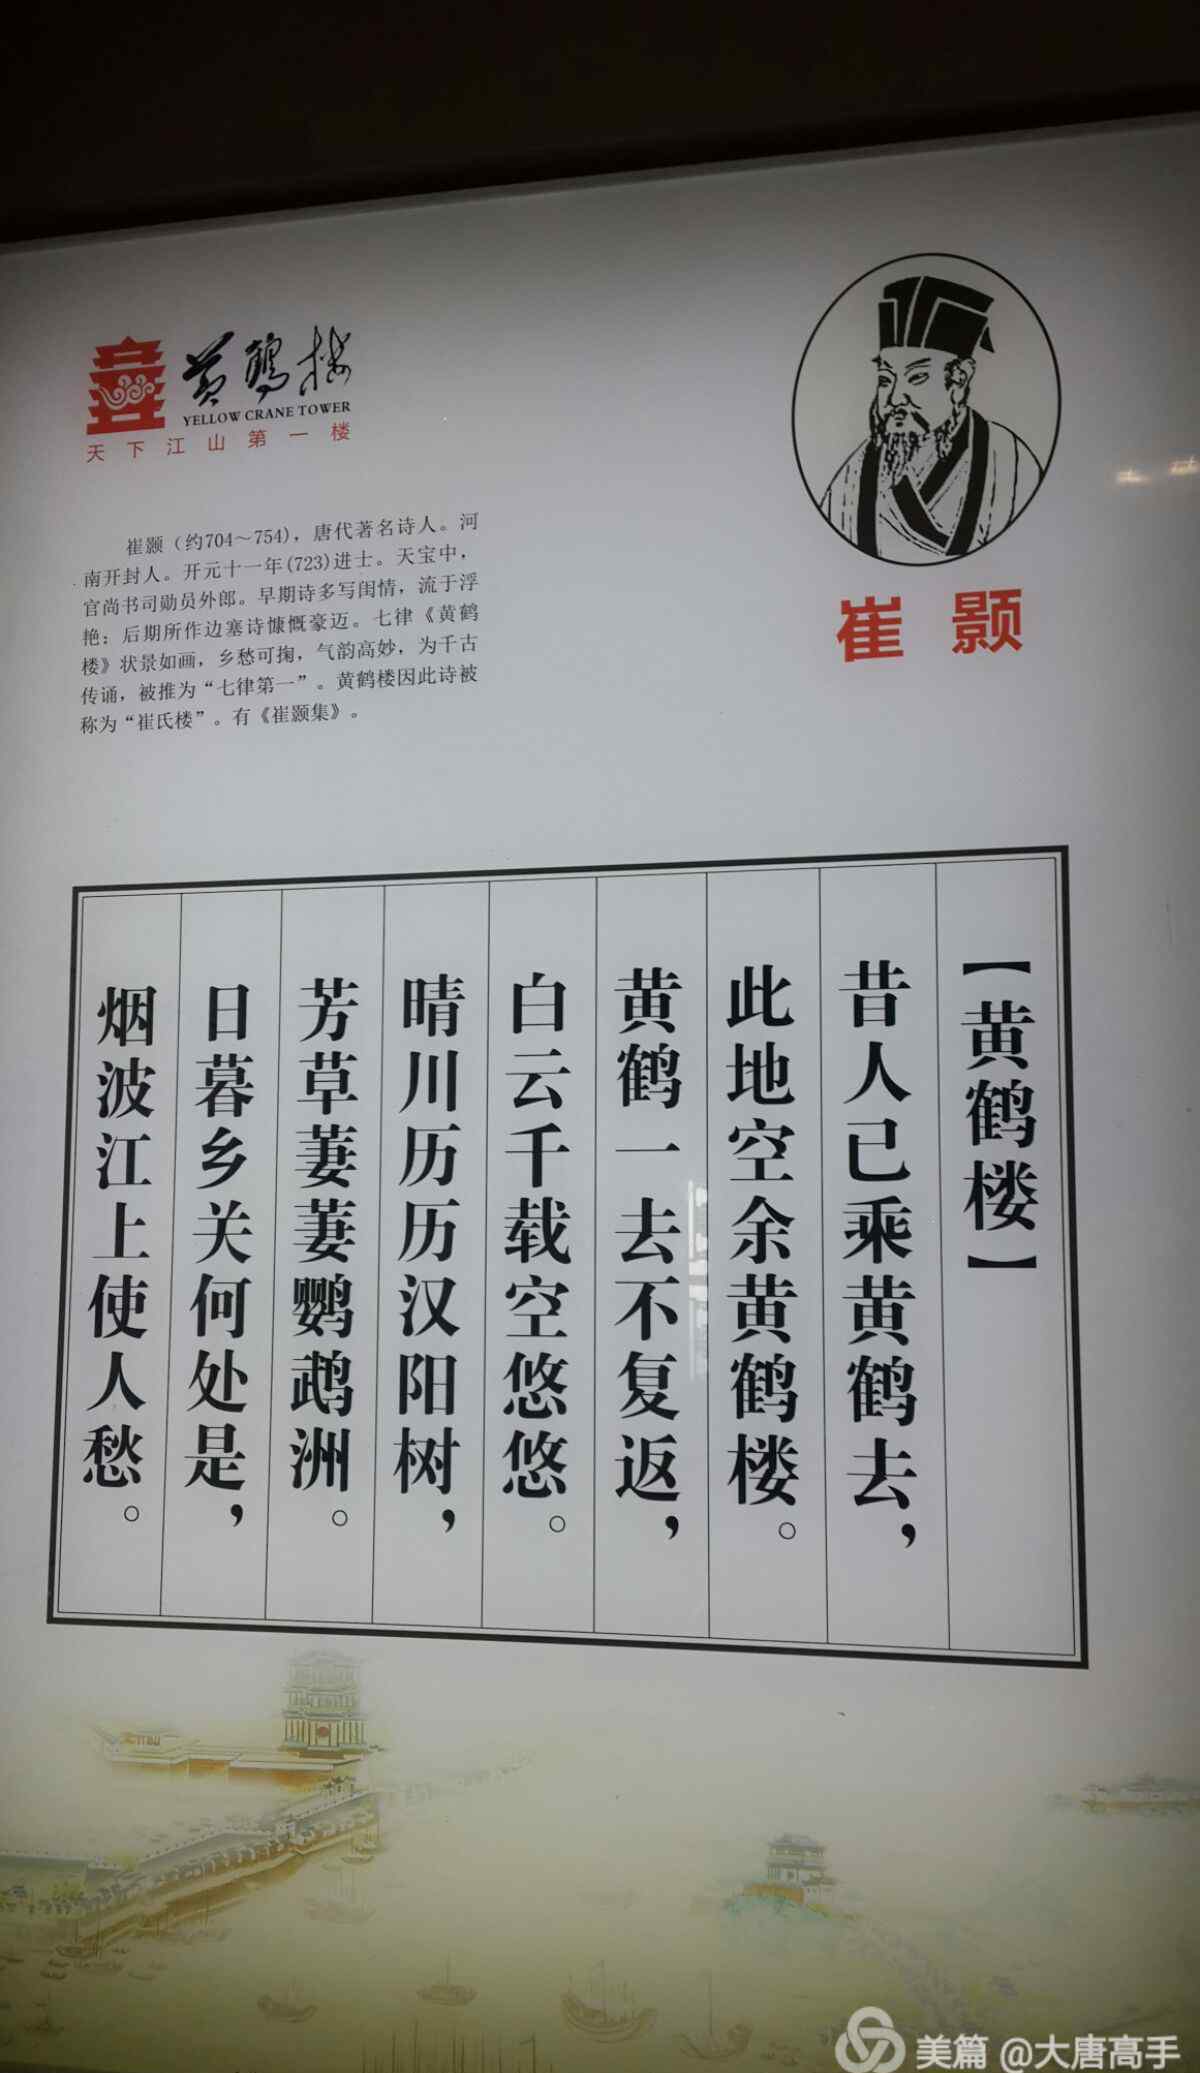 黄鹤楼
YELLOW CRANE TOWER
天下江山第一楼
崔颢
崔颢（约704～754)，唐代著名诗人。河
南开封人。开元十一年(723)进士。天宝中，
官尚书司勋员外郎。早期诗多写闺情，流于浮
艳；后期所作边塞诗慷慨豪迈。七律《黄鹤
楼》状景如画，乡愁可掬，气韵高妙，为千古
传诵，被推为“七律第一”。黄鹤楼因此诗被
称为“崔氏楼”。有《崔颢集》。
【黄鹤楼】
昔人已乘黄鹤去，
此地空余黄鹤楼。
黄鹤一去不复返，
白云千载空悠悠。
晴川历历汉阳树，
芳草萋萋鹦鹉洲。
日暮乡关何处是，
烟波江上使人愁。
美篇 @大唐高手